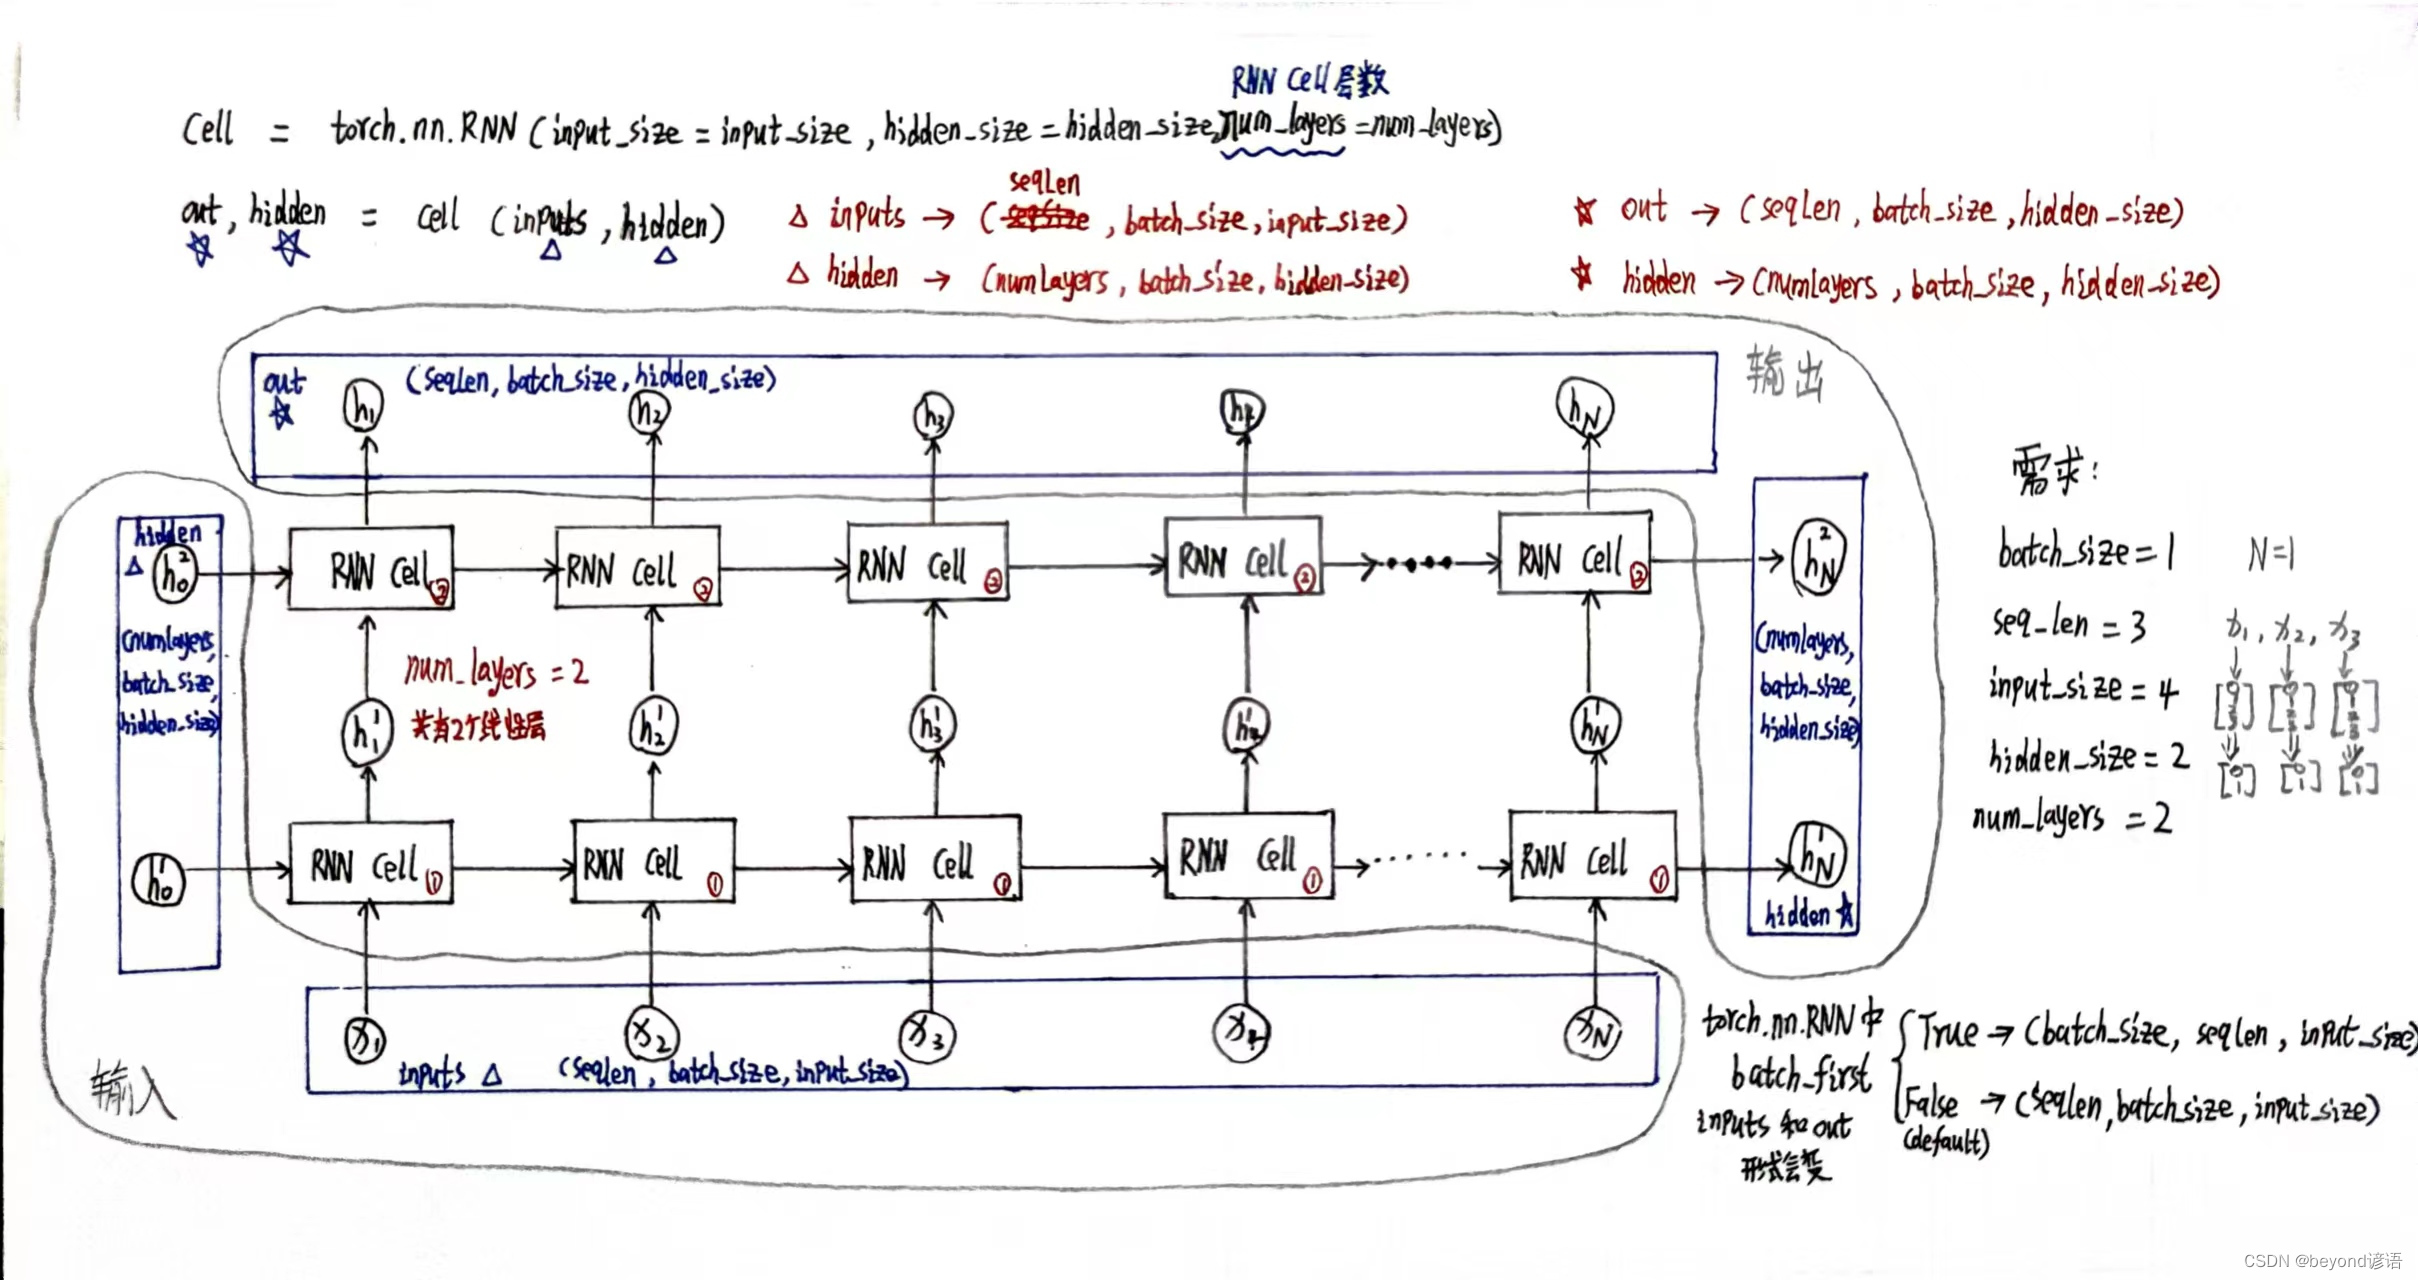 RNN Cell层数
Cell = torch.nn.RNN (input_size = input_size , hidden_size = hidden_size, num_layers = num_layers)
out , hidden = cell (inputs , hidden)
seqLen
△ inputs → ( , batch_size, input_size)
△ hidden → (numlayers , batch_size, hidden_size)
☆ out → (seqLen , batch_size , hidden_size)
☆ hidden → (numlayers , batch_size, hidden_size)
输出
out (seqLen, batch_size, hidden_size)
☆
h₁ h₂ h₃ h₄ h_N
hidden
△ h₀²
RNN Cell② RNN Cell② RNN Cell② RNN Cell② RNN Cell②
h_N²
(numlayers,
batch_size,
hidden_size)
num_layers = 2
共有2个线性层
h₁¹ h₂¹ h₃¹ h₄¹ h_N¹
(numlayers,
batch_size,
hidden_size)
h₀¹
RNN Cell① RNN Cell① RNN Cell① RNN Cell① RNN Cell①
h_N¹
hidden ☆
x₁ x₂ x₃ x₄ x_N
inputs △ (seqlen , batch_size, input_size)
输入
需求:
batch_size = 1 N=1
seq_len = 3 x₁, x₂, x₃
input_size = 4
hidden_size = 2
num_layers = 2
torch.nn.RNN中
batch_first
inputs 和 out
形式会变
True → (batch_size, seqlen , input_size)
False → (seqlen, batch_size, input_size)
(default)
CSDN @beyond谚语